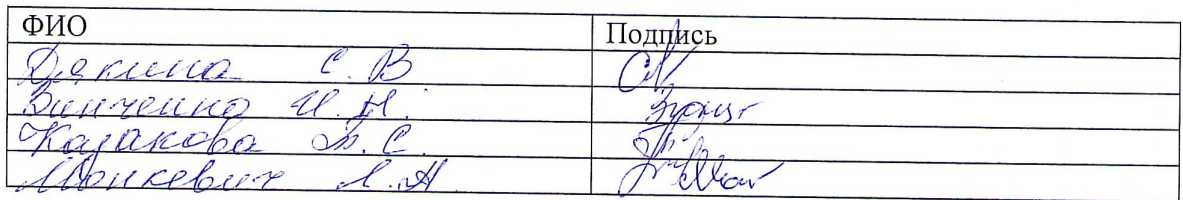 ФИО Подпись
Дякина С. В
Зинченко И. Н.
Казакова Т. С.
Монкевич Л. А.